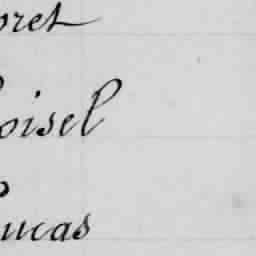 oret
oisel
ucas